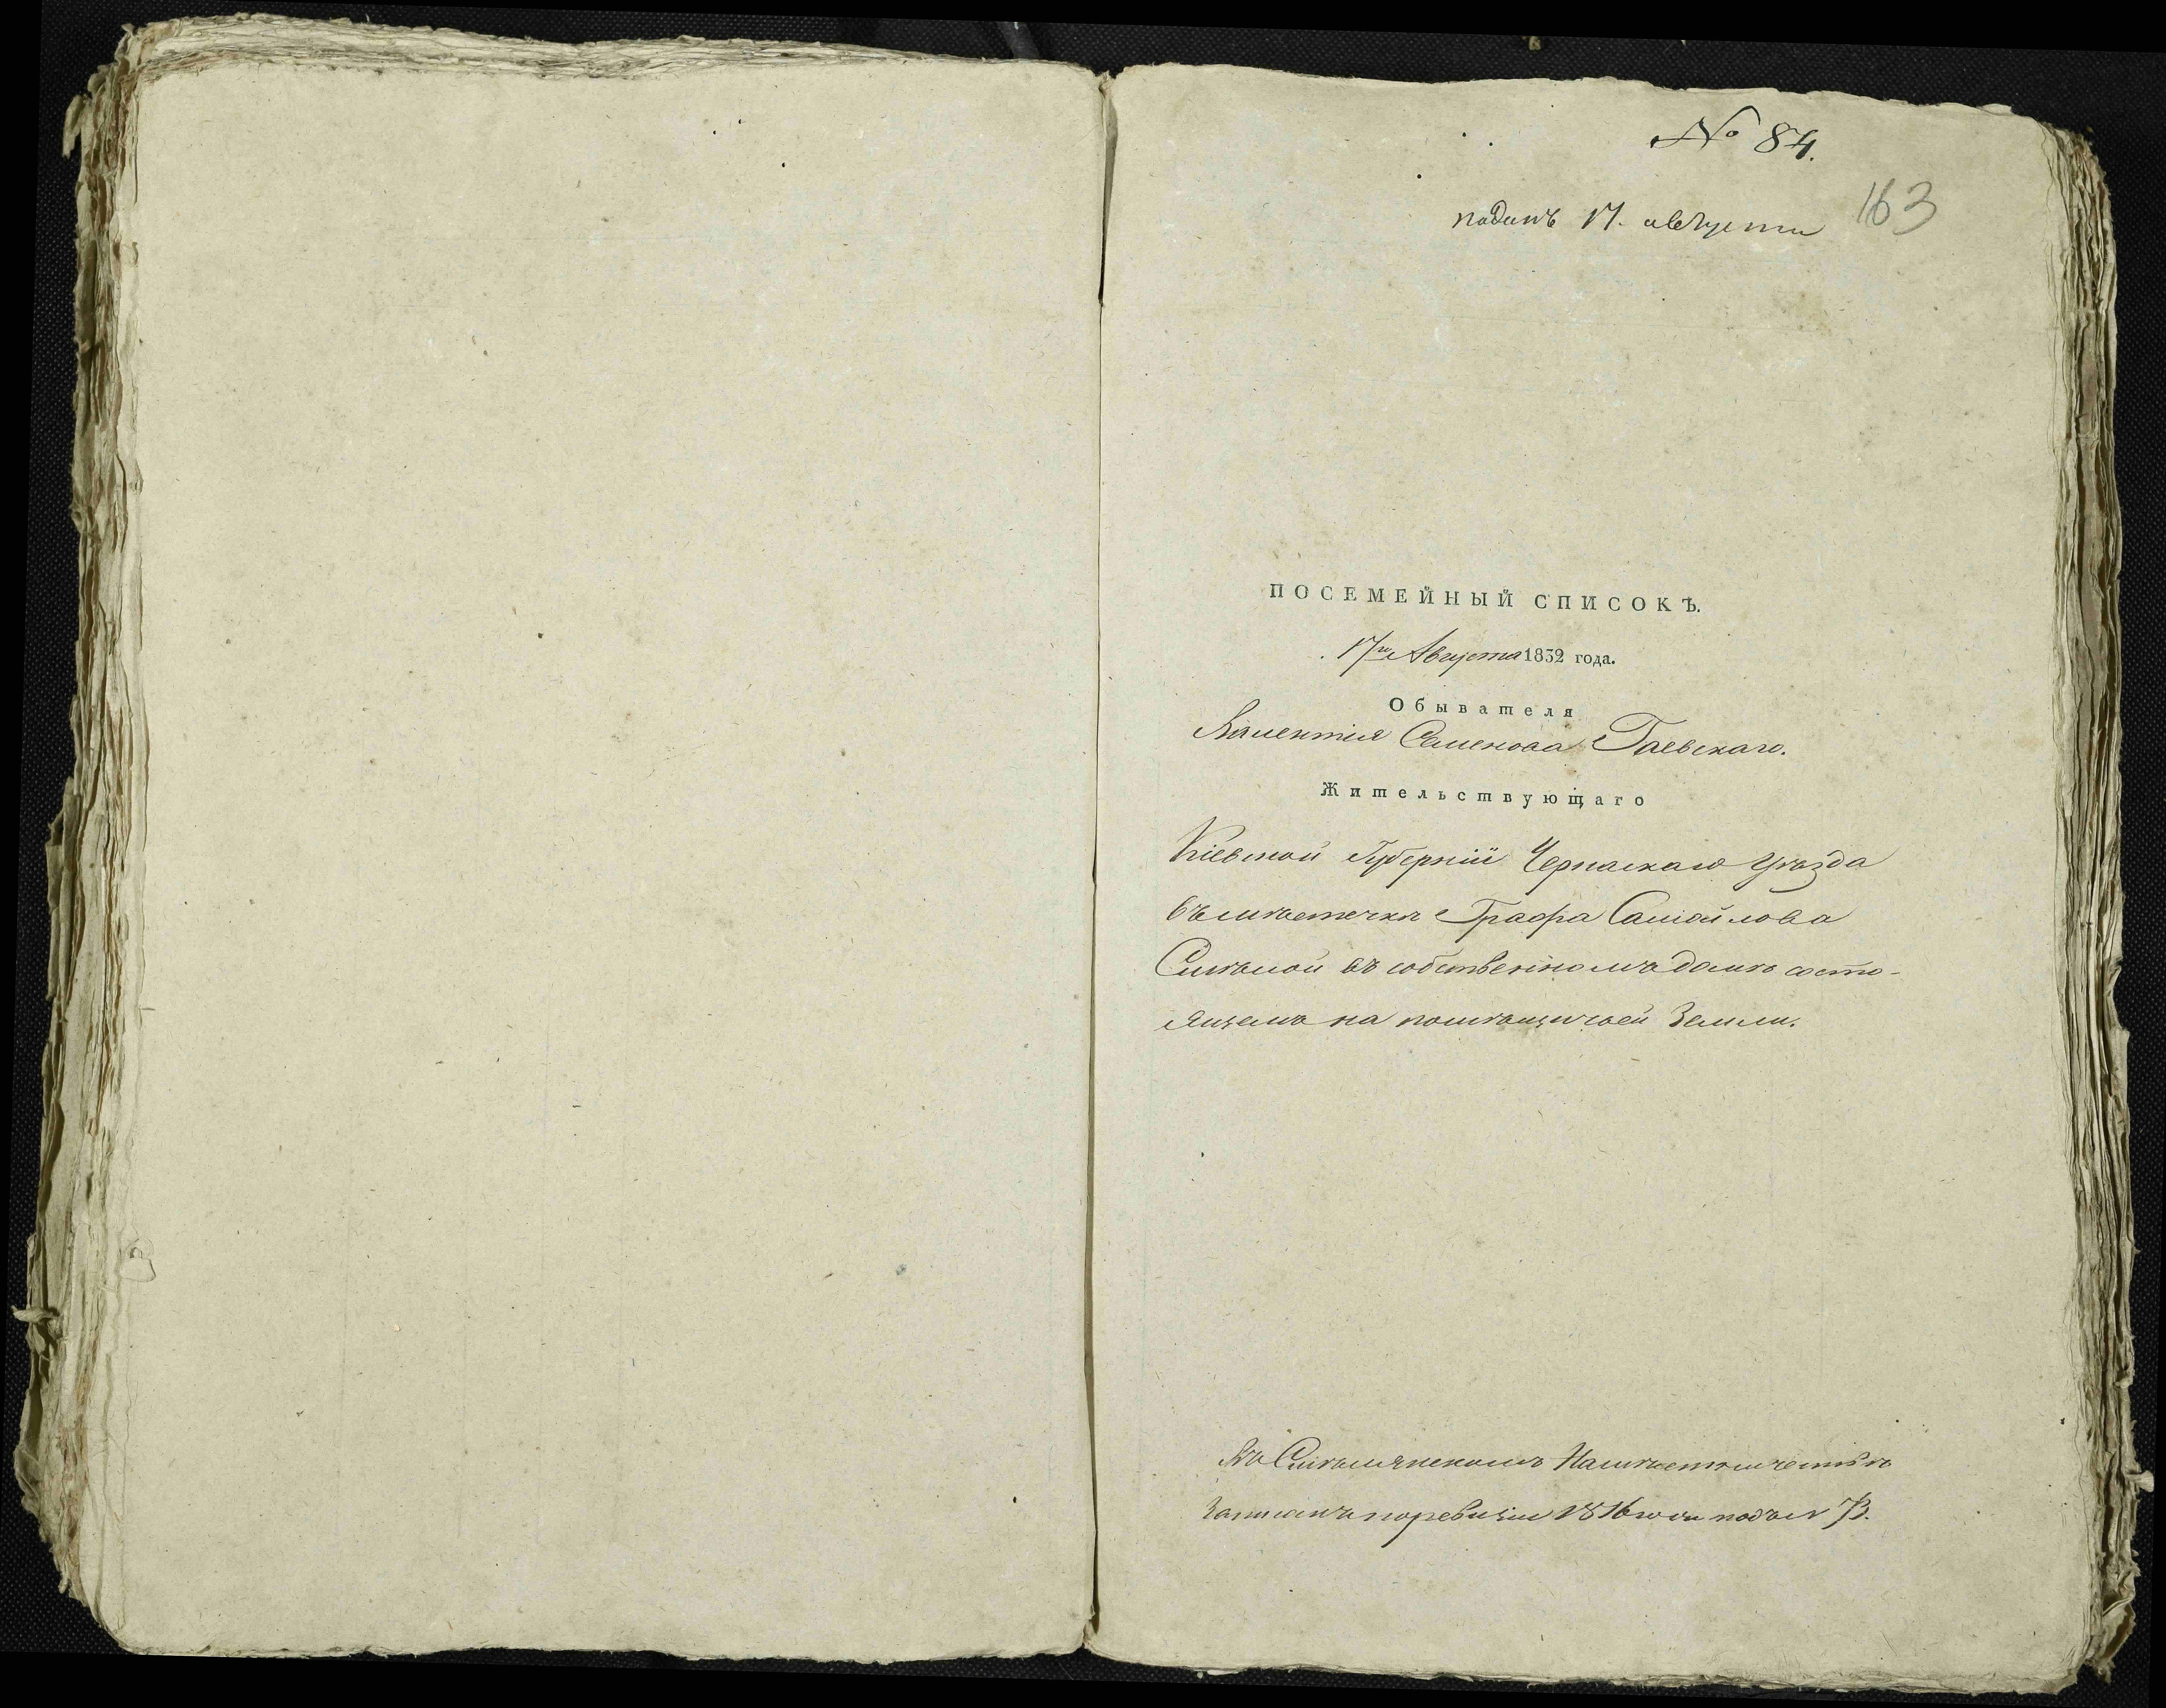 № 84.
163
поданъ 17. августа
ПОСЕМЕЙНЫЙ СПИСОКЪ.
17го Августа 1832 года.
Обывателя
Валентія Семенова Гаевскаго.
Жительствующаго
Кіевской Губерніи Черкаскаго Уѣзда
въ мѣстечкѣ Графа Самойлова
Смѣлой въ собственномъ домѣ состо-
ящемъ на помѣщичьей Земли.
Въ Смѣлянскомъ Намѣстничествѣ
Записанъ по ревизіи 1816 года подъ №